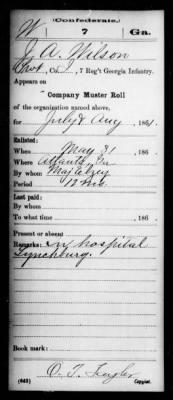 (Confederate.)
W 7 Ga.
J. A. Wilson
Pvt, Co. I, 7 Reg't Georgia Infantry.
Appears on
Company Muster Roll
of the organization named above,
for July & Aug, 1861.
Enlisted:
When May 31, 186
Where Atlanta, Ga
By whom Maj
Period 12 mo.
Last paid:
By whom
To what time , 186
Present or absent
Remarks: In hospital
Lynchburg.
Book mark:
(642) Copyist.